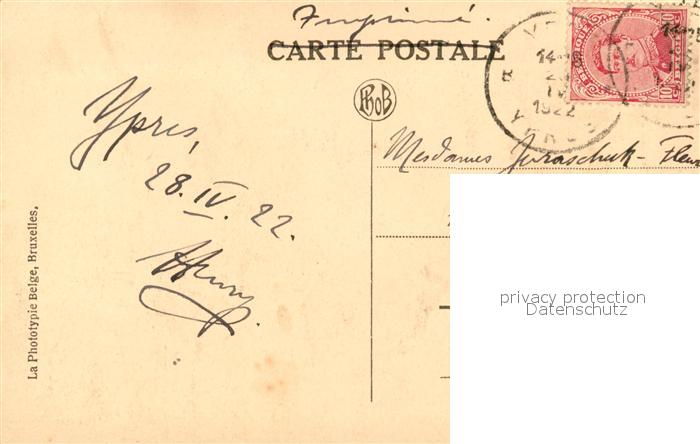 Imprimé.
CARTE POSTALE
PhoB
14-
1922
BELGIQUE
10
10
Ypres,
28. IV. 22.
Henry.
Mesdames
La Phototypie Belge, Bruxelles,
privacy protection
Datenschutz